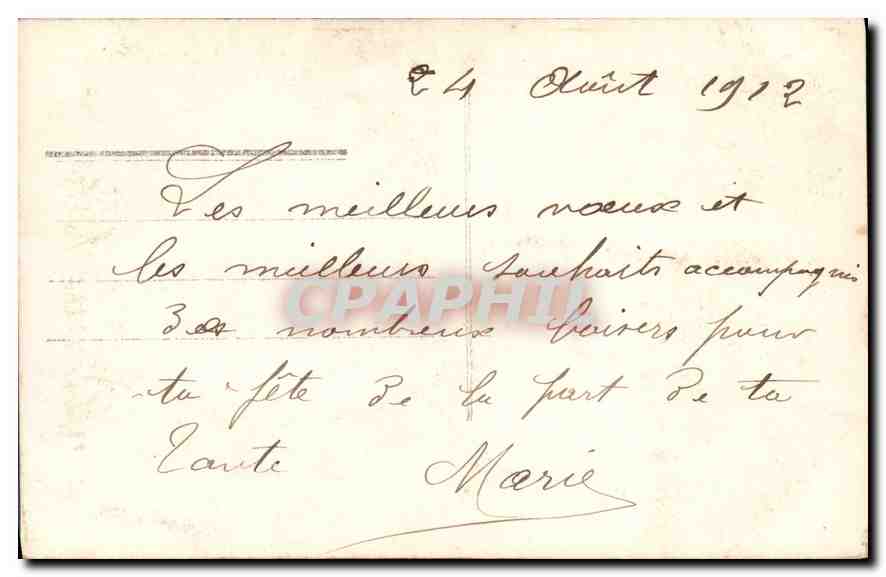 24 Août 1912
Les meilleurs vœux et
les meilleurs souhaits accompagnés
des nombreux baisers pour
ta fête de la part de ta
Tante Marie
CPAPHIL